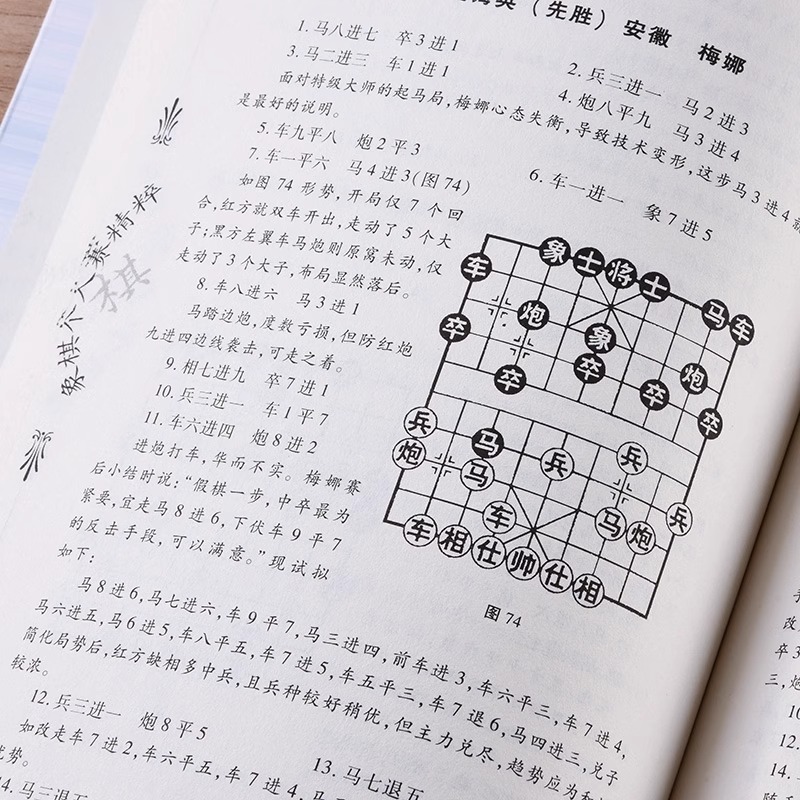 （先胜） 安徽 梅娜
1. 马八进七 卒3进1
2. 兵三进一 马2进3
3. 马二进三 车1进1
4. 炮八平九 马3进4
面对特级大师的起马局，梅娜心态失衡，导致技术变形，这步马3进4
是最好的说明。
5. 车九平八 炮2平3
6. 车一进一 象7进5
7. 车一平六 马4进3(图74)
如图74形势，开局仅7个回
合，红方就双车开出，走动了5个大
子；黑方左翼车马炮则原窝未动，仅
走动了3个大子，布局显然落后。
8. 车八进六 马3进1
马踏边炮，度数亏损，但防红炮
九进四边线袭击，可走之着。
9. 相七进九 卒7进1
10. 兵三进一 车1平7
11. 车六进四 炮8进2
进炮打车，华而不实。梅娜赛
后小结时说：“假棋一步，中卒最为
紧要，宜走马8进6，下伏车9平7
的反击手段，可以满意。”现试拟
如下：
马8进6，马七进六，车9平7，马三进四，前车进3，车六平三，车7进4，
马六进五，马6进5，车八平五，车7进5，车五平三，车7退6，马四进三，兑子
简化局势后，红方缺相多中兵，且兵种较好稍优，但主力兑尽，趋势应为和
较浓。
12. 兵三进一 炮8平5
13. 马七退五
如改走车7进2，车六平五，车7进4，
优势。
14. 马三退五
象棋个人赛精粹
棋
象 士 将 士
车 马 车
炮
卒 象 炮
卒 卒 卒 卒
兵 马 兵 兵
炮 马
车 马 炮 兵
车 相 仕 帅 仕 相
图74
改
卒3
三，炮
10
12.
14.